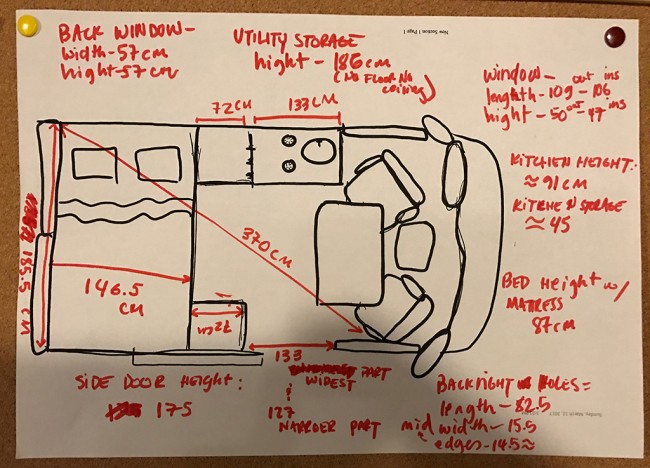 New Section 1 Page 1
BACK WINDOW-
width-57cm
hight-57cm
UTILITY STORAGE
hight - 186cm
(NO FLOOR NO
ceiling)
WINDOW- out ins
lenghth-109-106
hight-50 out-47 ins
72CM
133CM
KITCHEN HEIGHT:
≈91CM
KITCHEN STORAGE
≈45
370CM
185.5 CM
146.5
CM
72CM
BED Height w/
MATRESS
87CM
133
PART
WIDEST
SIDE DOOR HEIGHT:
175
127
NARROER PART
BACKLIGHT HOLES=
length-82.5
mid width-15.5
edges-14.5≈